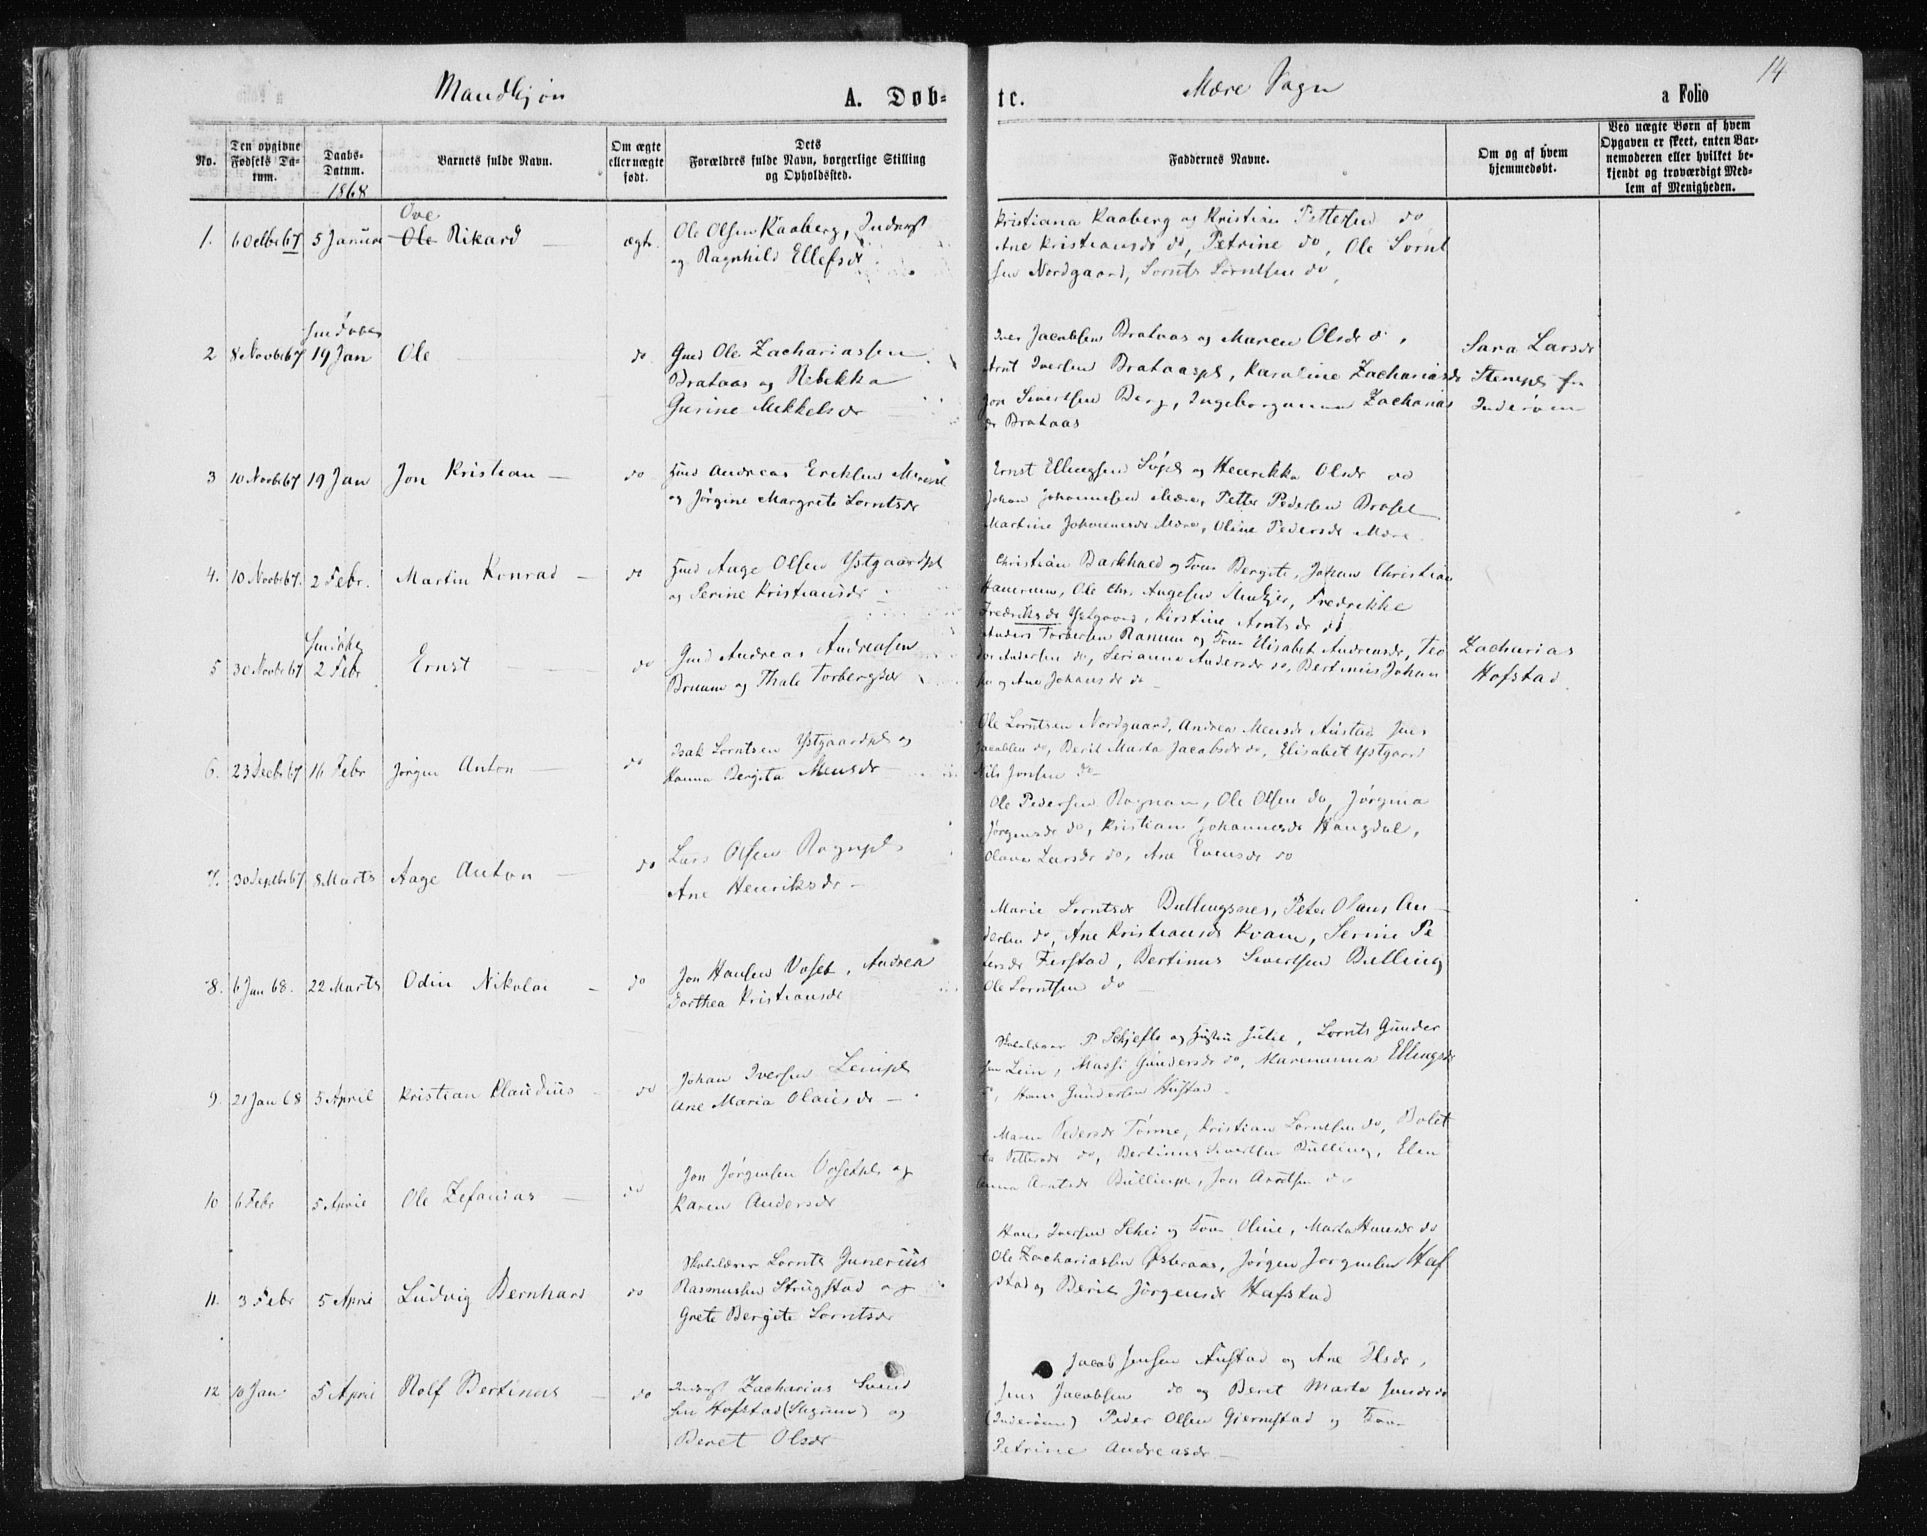 14
Mandkjøn A. Døb- te. Mære Sogn a Folio
No.
Den opgivne Fødsels Datum.
Daabs-Datum.
1868
Barnets fulde Navn.
Om ægte eller uægte født.
Dets Forældres fulde Navn, borgerlige Stilling og Opholdssted.
Faddernes Navne.
Om og af hvem hjemmedøbt.
Ved uægte Børn af hvem Opgaven er skeet, enten Barnemoderen eller hvilket bekjendt og troværdigt Medlem af Menigheden.
Ove
1. 6 Octbr 67 5 Januar Ole Rikard ægte
Ole Olsen Kaaberg, Inderst
og Ragnhild Ellefsdr
Kristiana Kaaberg og Kristian Pettersen do
Ane Kristiansdr do, Petrine do, Ole Lornt
sen Nordgaard, Lornts Lorntsen do,
2 8 Novbr 67 19 Jan Ole do
Gmd Ole Zachariassen
Brataas og Rebekka
Gurine Mekkelsdr
Iver Jacobsen Brataas og Maren Olsdr do,
Arnt Iversen Brataaspl, Karoline Zachariasdr
Jon Sivertsen Berg, Ingeborganna Zacharias
dr Brataas
Sara Larsdr
Stenspl fra
Inderøen
3 10 Novbr 67 19 Jan Jon Kristian do
Gmd Andreas Eriksen
og Jørgine Margrete Lorntsdr
Ernst Ellingsen og Henrikka Olsdr do
Johan Johannesen Mære, Petter Pedersen
Martine Johannesdr Mære, Oline Pedersdr Mære
4. 10 Novbr 67. 2 Febr. Martin Konrad do
Gmd Aage Olsen Ystgaardpl
og Serine Kristiansdr
Christian Barkhald og Kone Bergite, Johan Christian
Hammrum, Ole Chr. Aagesen, Fredrikke
Fredriksdr Ystgaard, Kirstine Arntsdr do
5 30 Novbr 67 2 Febr Ernst do
Gmd Andreas Andreasen
og Thale Torbergsdr
Anders Torbersen Ranum og Kone Elisabet Andreasdr, Teo
dor Andersen do, Serianna Andersdr do, Bertinus Johan
sen og Ane Johansdr do
Zacharias
Hofstad
6. 23 Decbr 67 16 Febr Jørgen Anton do
Isak Lorntsen Ystgaardpl og
Hanna Bergita Mensdr
Ole Lorntsen Nordgaard, Andrea Mensdr Austad, Jens
Jacobsen do, Berit Marta Jacobsdr do, Elisabet Ystgaard
Nils Jonsen do
7. 30 Septbr 67 8 Marts Aage Anton do
Lars Olsen Rognpl
Ane Henriksdr
Ole Pedersen Rognan, Ole Olsen do, Jørgina
Jørgensdr do, Kristian Johannesdr Haugdal,
Olava Larsdr do, Ane Evensdr do
8. 6 Jan 68. 22 Marts Odin Nikolai do
Jon Hansen Voset, Andrea
Dorthea Kristiansdr
Marie Lorntsdr Bullingsnes, Peter Olaus An
dersen do, Ane Kristiansdr Kvam, Serine Pe
tersdr, Bertinus Sivertsen Bulling
Ole Lorntsen do
9. 21 Jan 68 5 April Kristian Claudius do
Johan Iversen Leinpl
Ane Maria Olausdr
Skolelærer P Schjefte og Hustru Julie, Lornts Gunder
sen Lein, Massi Gundersdr do, Marenanna Ellingsdr
do, Hans Gundersen Hustad
10 6 Febr 5 April Ole Zefanias do
Jon Jørgensen Vosetpl og
Karen Andersdr
Maren Pedersdr Tørme, Kristian Lorntsen do, Bolet
ta Pettersdr do, Bertinus Sivertsen Bulling, Elen
Anna Arntsdr Bullingpl, Jon Arntsen do
11. 3 Febr 5 April Ludvig Bernhard do
Skolelærer Lornts Gunerius
Rasmussen Strugstad og
Grete Bergite Lorntsdr
Hans Iversen Schei og Kone Oline, Marta Hansdr do
Ole Zachariassen Østeraas, Jørgen Jørgensen Haf
stad og Berit Jørgensdr Hafstad
12 10 Jan 5 April Rolf Bertinus do
Inderst Zacharias Svend
sen Hofstad og
Beret Olsdr
Jacob Jensen Austad og Ane Olsdr,
Jens Jacobsen do og Beret Marta Jensdr do
(Inderøen) Peder Olsen Gjermstad og Kone
Petrine Andreasdr